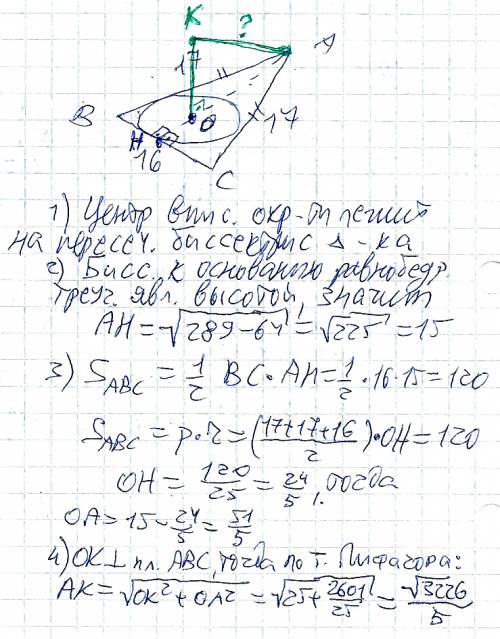 K
?
A
17
B
O
17
H
16
C
1) Центр впис. окр-ти лежит
на пересеч. биссектрис Δ-ка
2) Бисс. к основанию равнобедр.
треуг. явл. высотой, значит
AH = √289-64 = √225 = 15
3) S_ABC = 1/2 BC · AH = 1/2 · 16 · 15 = 120
S_ABC = p · r = (17+17+16/2) · OH = 120
OH = 120/25 = 24/5, тогда
OA = 15 - 24/5 = 51/5
4) OK ⊥ пл. ABC, тогда по т. Пифагора:
AK = √OK² + OA² = √25 + 2601/25 = √3226/5